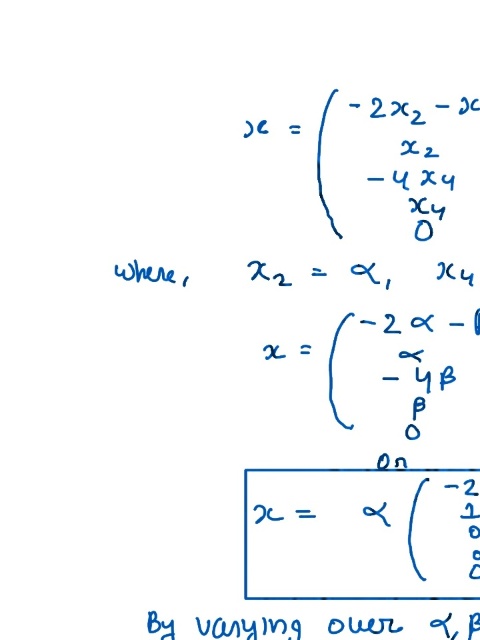 x = ( - 2x₂ - x
x₂
- 4 x₄
x₄
0
where, x₂ = α, x₄
x = ( - 2 α - β
α
- 4 β
β
0
or
x = α ( - 2
1
0
0
0
By varying over α, β